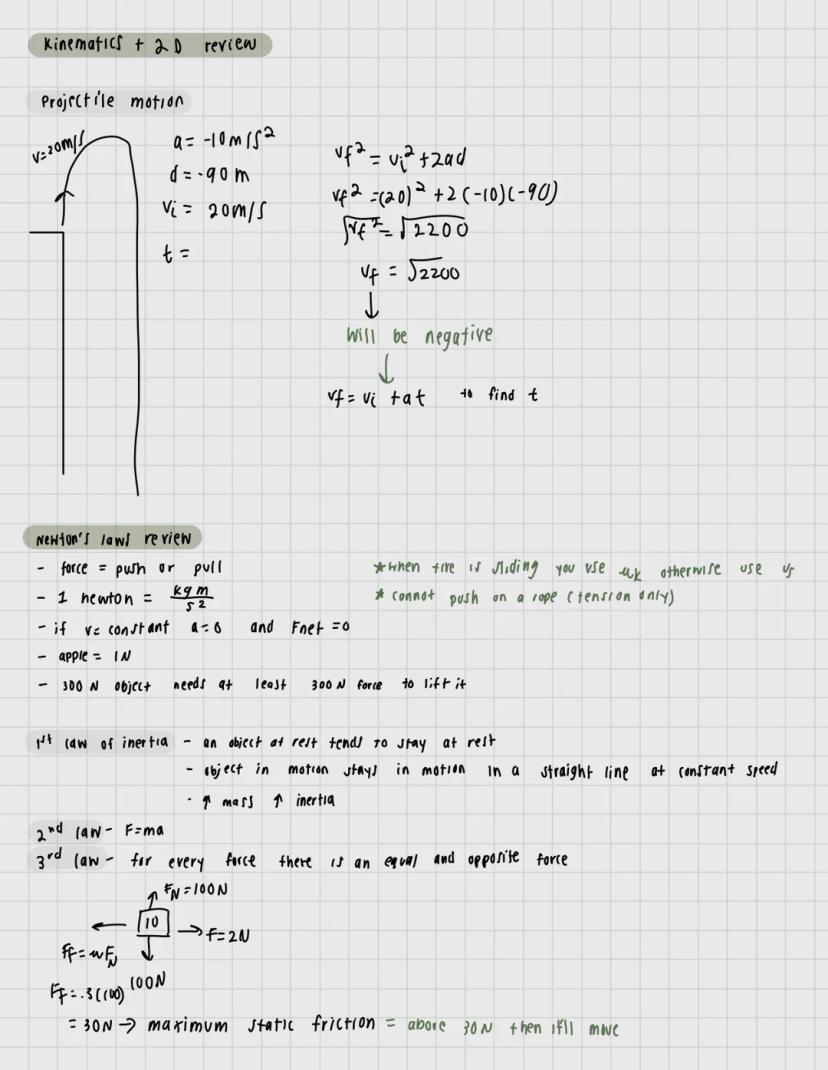 Kinematics + 2D review
Projectile motion
v=20m/s
a = -10m/s²
d = -90 m
Vi = 20m/s
t =
vf² = vi² + 2ad
vf² = (20)² + 2(-10)(-90)
√vf² = √2200
vf = √2200
↓
Will be negative
↓
vf = vi + at to find t
Newton's laws review
- force = push or pull
- 1 newton = kg m / s²
- if v = constant a = 0 and Fnet = 0
- apple = 1N
- 300 N object needs at least 300 N force to lift it
*when tire is sliding you use uk otherwise use us
* cannot push on a rope (tension only)
1st law of inertia - an object at rest tends to stay at rest
- object in motion stays in motion in a straight line at constant speed
- ↑ mass ↑ inertia
2nd law - F=ma
3rd law - for every force there is an equal and opposite force
FN = 100N
10
F=2N
Ff = uFN
100N
Ff = .3(100)
= 30N → maximum static friction = above 30N then it'll move